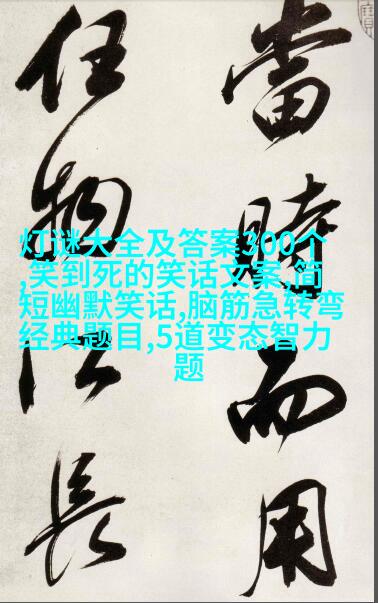 當時而用
任物長
灯谜大全及答案300个
,笑到死的笑话文案,简
短幽默笑话,脑筋急转弯
经典题目,5道变态智力
题